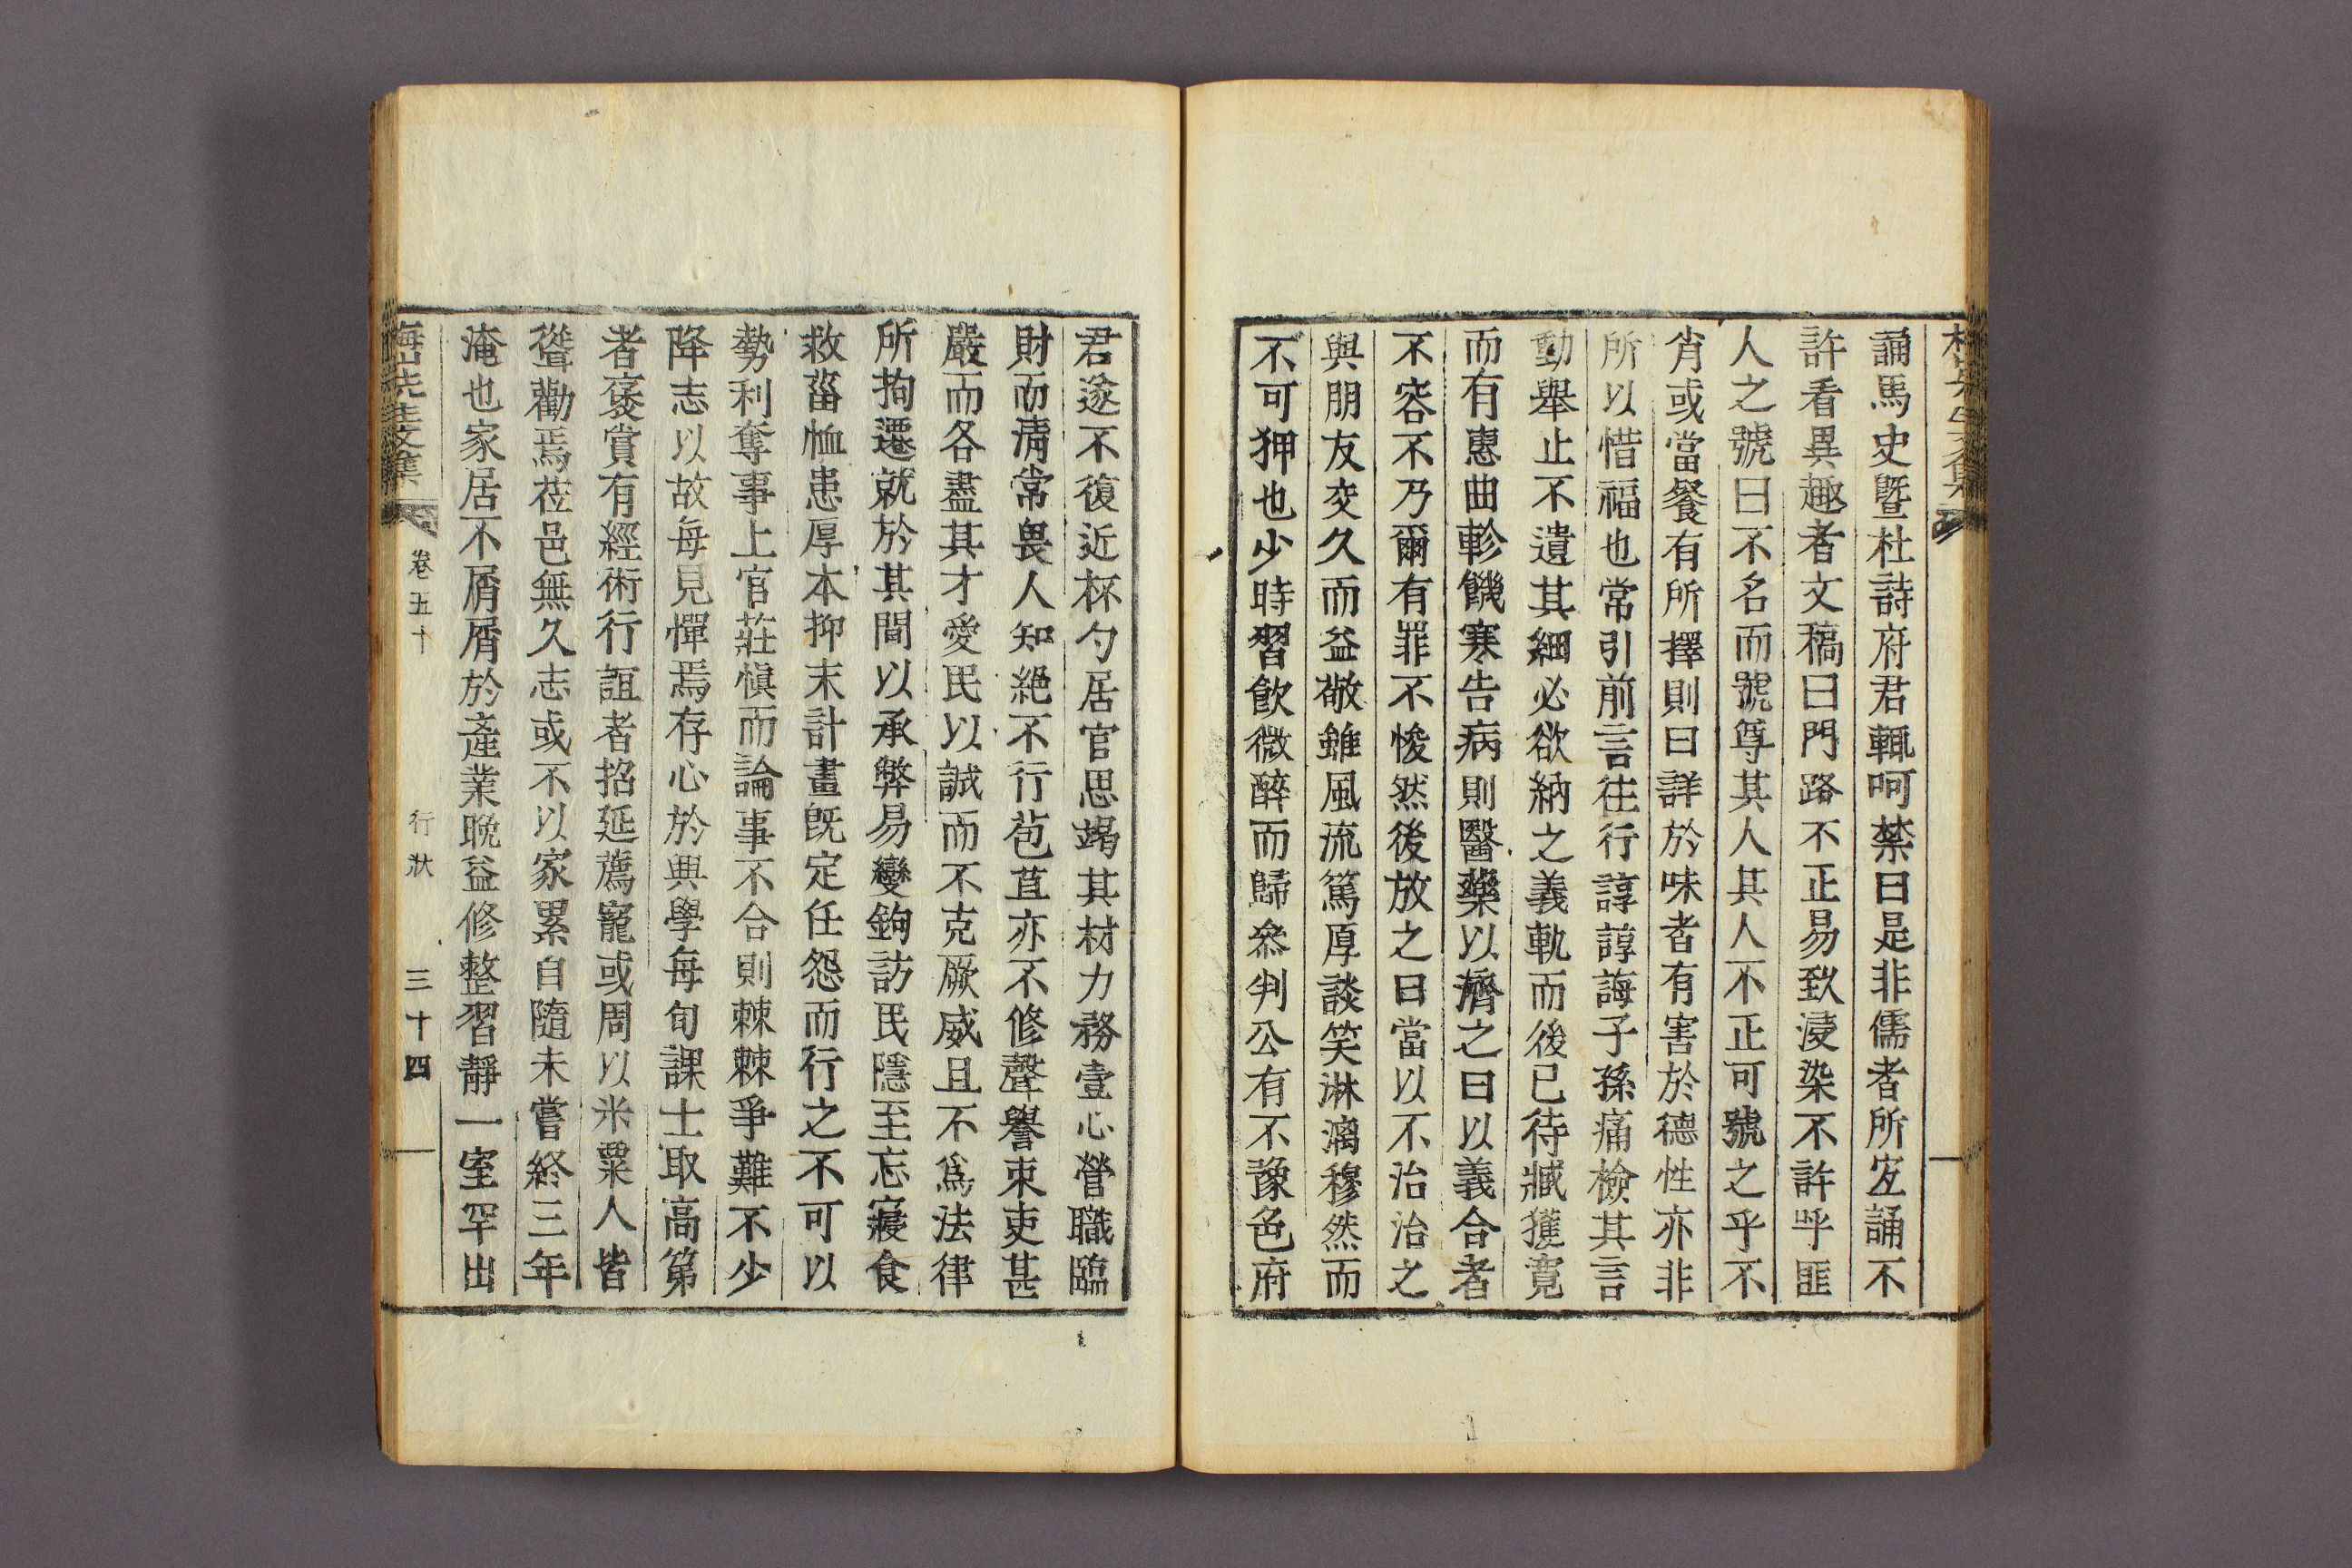 誦馬史曁杜詩府君輒呵禁曰是非儒者所宜誦不
許看異趣者文稿曰門路不正易致浸染不許呼匪
人之號曰不名而號尊其人其人不正可號之乎不
肖或當餐有所擇則曰詳於味者有害於德性亦非
所以惜福也常引前言往行諄諄誨子孫痛檢其言
動舉止不遺其細必欲納之義軌而後已待臧獲寬
而有惠曲軫饑寒告病則醫藥以濟之曰以義合者
不容不乃爾有罪不悛然後放之曰當以不治治之
與朋友交久而益敬雖風流篤厚談笑淋漓穆然而
不可狎也少時習飮微醉而歸叅判公有不豫色府
君遂不復近杯勺居官思竭其材力務壹心營職臨
財而淸常畏人知絶不行苞苴亦不修聲譽束吏甚
嚴而各盡其才愛民以誠而不克厥威且不爲法律
所拘遷就於其間以承弊易變鉤訪民隱至忘寢食
救菑恤患厚本抑末計畫旣定任怨而行之不可以
勢利奪事上官莊愼而論事不合則棘棘爭難不少
降志以故每見憚焉存心於興學每旬課士取高第
者褒賞有經術行誼者招延薦寵或周以米粟人皆
聳勸焉莅邑無久志或不以家累自隨未嘗終三年
淹也家居不屑屑於產業晩益修整習靜一室罕出
梅山先生文集 卷五十 行狀 三十四